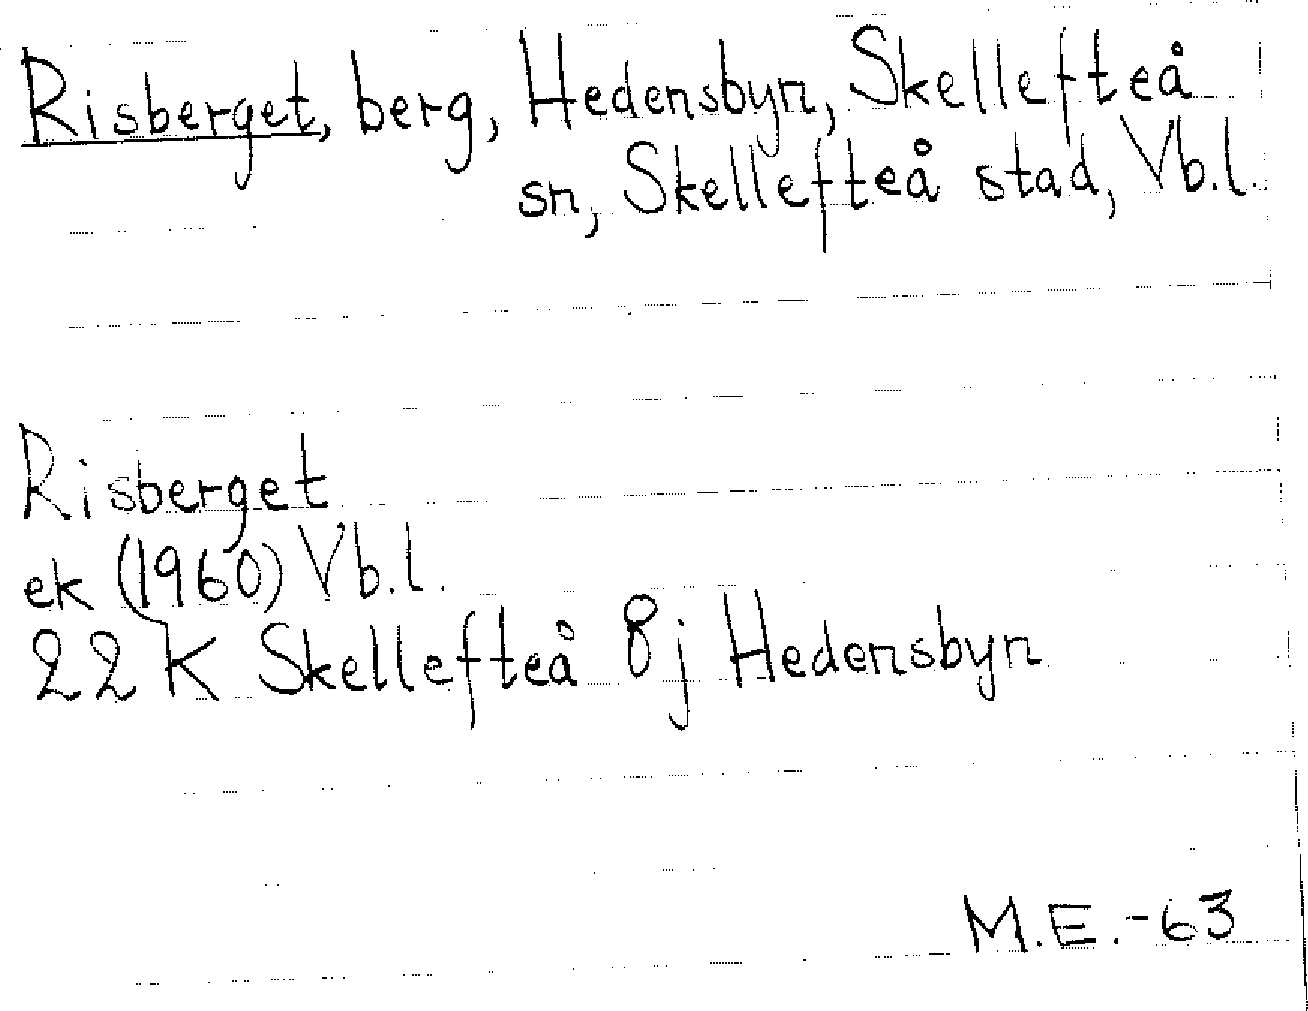 Risberget, berg, Hedensbyn, Skellefteå
sn, Skellefteå stad, Vb.l.
Risberget
ek (1960) Vb.l.
22K Skellefteå 8j Hedensbyn
M.E.-63